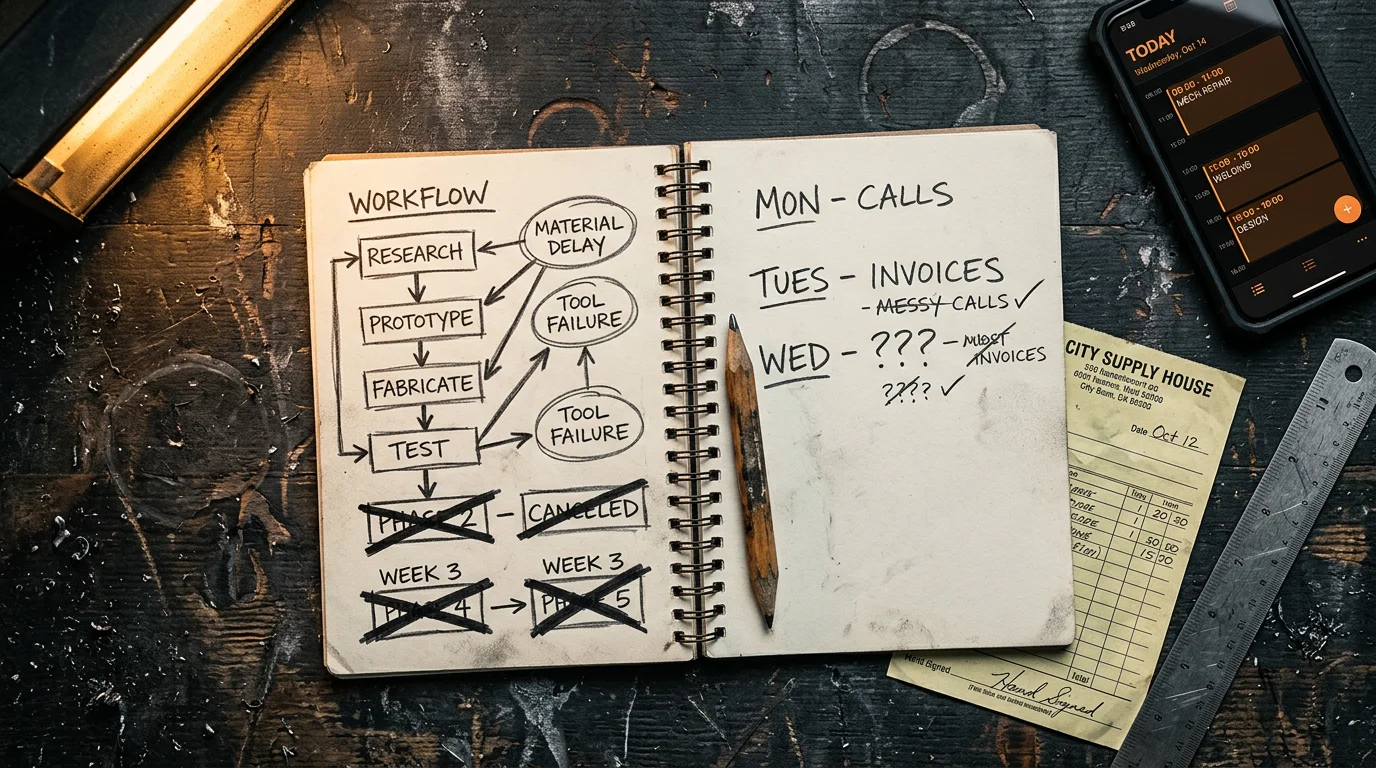 WORKFLOW
RESEARCH
MATERIAL
DELAY
PROTOTYPE
TOOL
FAILURE
FABRICATE
TOOL
FAILURE
TEST
PHASE 2 - CANCELED
WEEK 3 WEEK 3
PHASE 4 PHASE 5
MON - CALLS
TUES - INVOICES
- MESSY CALLS ✓
WED - ??? - MOST
INVOICES
???? ✓
TODAY
Wednesday, Oct 14
MECH. REPAIR
DESIGN
+
CITY SUPPLY HOUSE
Date Oct 12
1 20
1
50 00
15 00
Total
Hand Signed